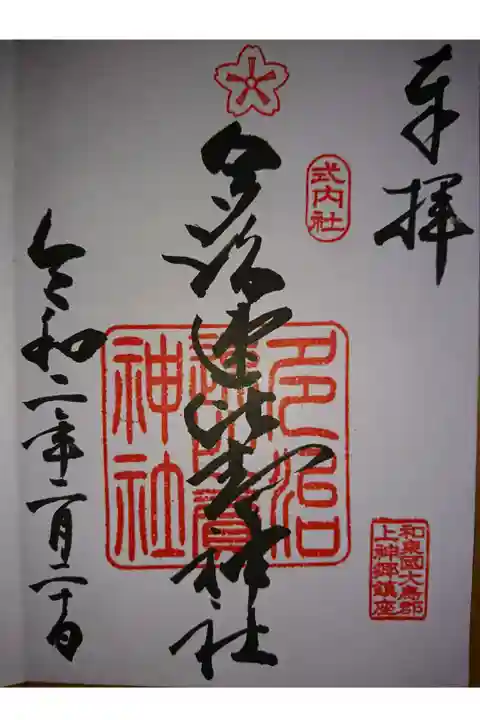 奉拝
式内社
和泉國大鳥郡
上神郷鎮座
多治速比売神社
多治
速比賣
神社
令和二年二月二十日